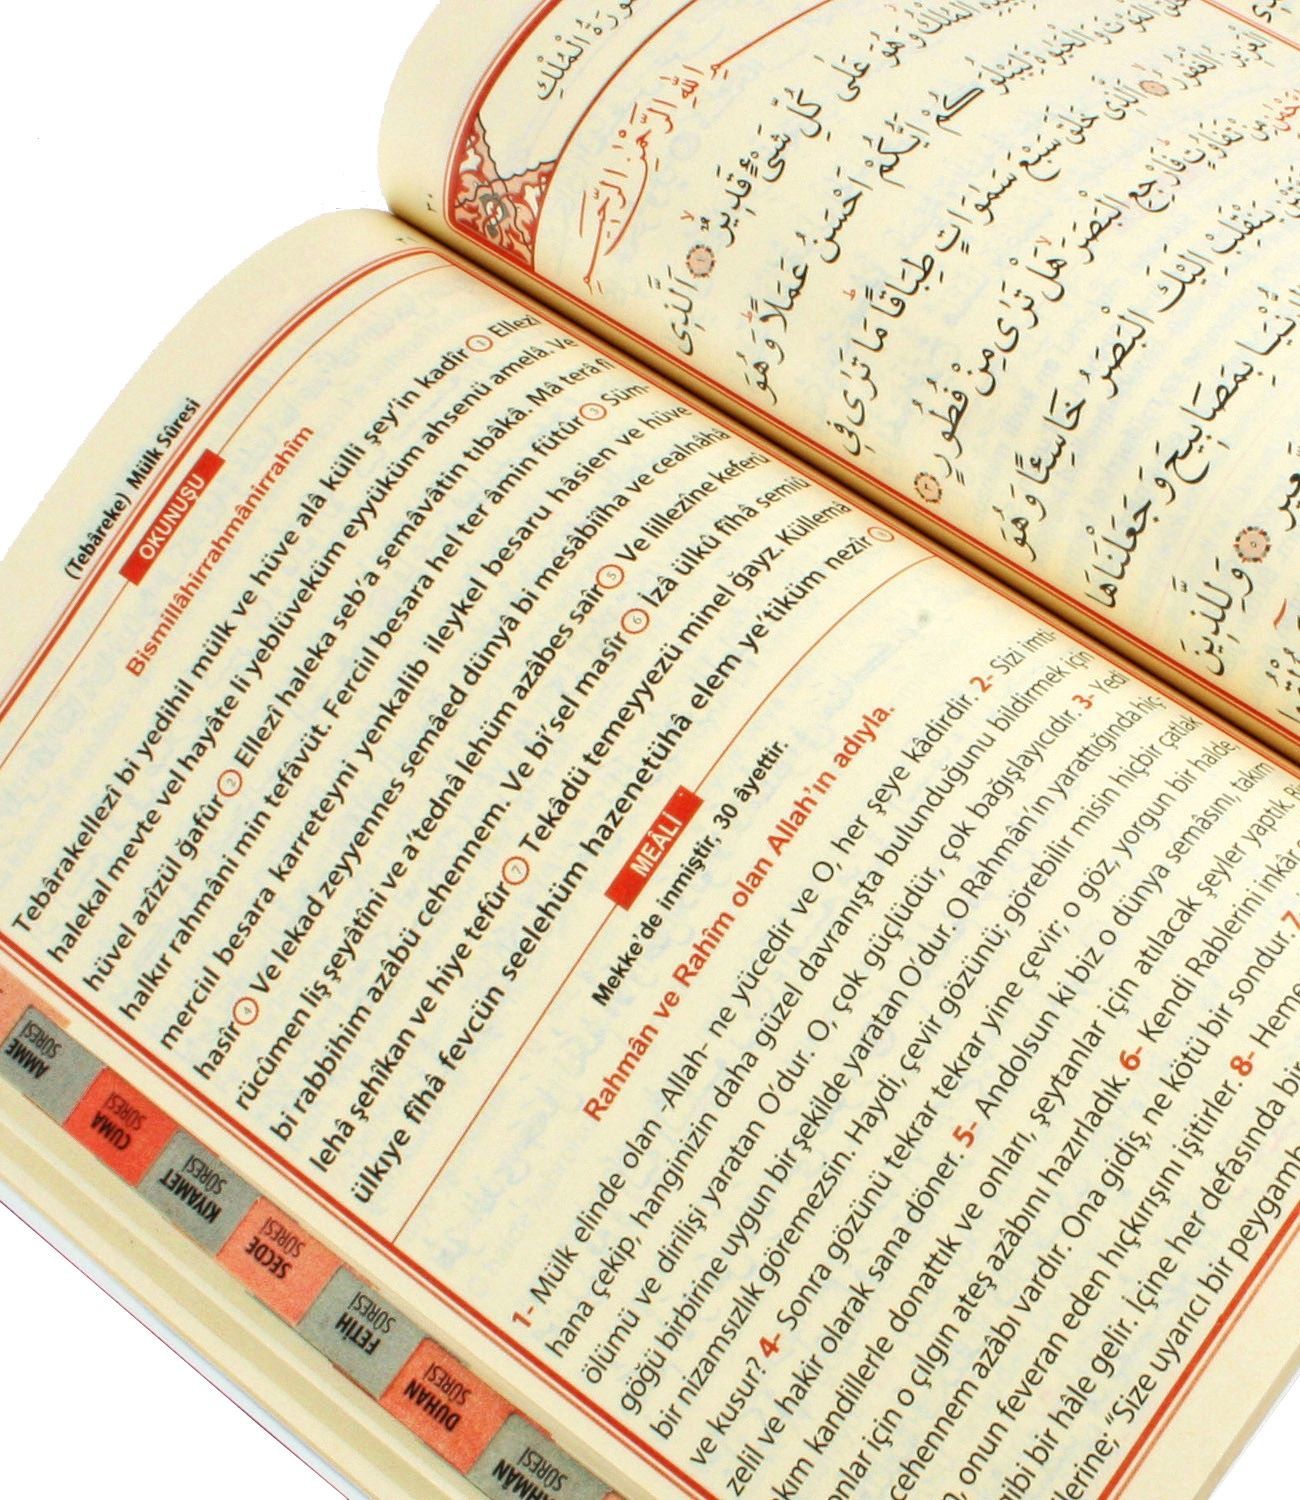 (Tebâreke) Mülk Sûresi
OKUNUŞU
Bismillâhirrahmânirrahîm
Tebârakellezî bi yedihil mülk ve hüve alâ külli şey'in kadîr 1 Ellezî
halekal mevte vel hayâte li yeblüveküm eyyüküm ahsenü amelâ. Ve
hüvel azîzül ğafûr 2 Ellezî haleka seb'a semâvâtin tıbâkâ. Mâ terâ fî
halkır rahmâni min tefâvüt. Ferciıl besara hel ter âmin fütûr 3 Süm-
merciıl besara karreteyni yenkalib ileykel besaru hâsien ve hüve
hasîr 4 Ve lekad zeyyennes semâed dünyâ bi mesâbîiha ve cealnâhâ
rücûmen liş şeyâtîni ve a'tednâ lehüm azâbes saîr 5 Ve lillezîne keferû
bi rabbihim azâbü cehennem. Ve bi'sel masîr 6 İzâ ülkû fîhâ semiû
lehâ şehîkan ve hiye tefûr 7 Tekâdü temeyyezü minel ğayz. Küllemâ
ülkıye fîhâ fevcün seelehüm hazenetühâ elem ye'tiküm nezîr 8
MEÂLİ
Mekke'de inmiştir, 30 âyettir.
Rahmân ve Rahîm olan Allah'ın adıyla.
1- Mülk elinde olan -Allah- ne yücedir ve O, her şeye kâdirdir. 2- Sizi imti-
hana çekip, hanginizin daha güzel davranışta bulunduğunu bildirmek için
ölümü ve dirilişi yaratan O'dur. O, çok güçlüdür, çok bağışlayıcıdır. 3- Yedi
göğü birbirine uygun bir şekilde yaratan O'dur. O Rahmân'ın yarattığında hiç-
bir nizamsızlık göremezsin. Haydi, çevir gözünü; görebilir misin hiçbir çatlak
ve kusur? 4- Sonra gözünü tekrar tekrar yine çevir; o göz, yorgun bir halde,
zelil ve hakir olarak sana döner. 5- Andolsun ki biz o dünya semâsını, takım
kım kandillerle donattık ve onları, şeytanlar için atılacak şeyler yaptık.
onlar için o çılgın ateş azabını hazırladık. 6- Kendi Rablerini inkâr
cehennem azâbı vardır. Ona gidiş, ne kötü bir sondur. 7
onun feveran eden hıçkırışını işitirler. 8- Heme
gibi bir hâle gelir. İçine her defasında bir
lerine; "Size uyarıcı bir peygamb
AMME SÛRESİ
CUMA SÛRESİ
KIYAMET SÛRESİ
SECDE SÛRESİ
FETİH SÛRESİ
DUHAN SÛRESİ
HMAN SÛRESİ
سُورَةُ الْمُلْكِ
اللهِ الرَّحْمٰنِ الرَّحِيمِ
الْمُلْكُ وَهُوَ عَلٰى كُلِّ شَىْءٍ قَدِيرٌ ١ اَلَّذِى
الْمَوْتَ وَالْحَيٰوةَ لِيَبْلُوَكُمْ اَيُّكُمْ اَحْسَنُ عَمَلًا وَهُوَ
الْعَزِيزُ الْغَفُورُ ٢ اَلَّذِى خَلَقَ سَبْعَ سَمٰوَاتٍ طِبَاقًا مَا تَرٰى فِى
مِنْ تَفَاوُتٍ فَارْجِعِ الْبَصَرَ هَلْ تَرٰى مِنْ فُطُورٍ ٣
يَنْقَلِبْ اِلَيْكَ الْبَصَرُ خَاسِئًا وَهُوَ
الدُّنْيَا بِمَصَابِيحَ وَجَعَلْنَاهَا
السَّعِيرِ ٥ وَلِلَّذِينَ